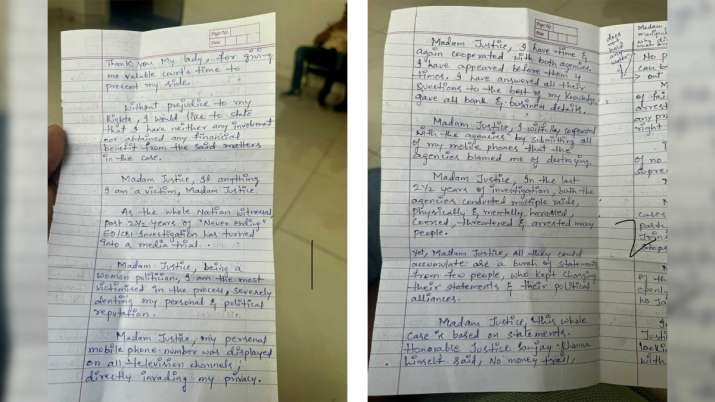 Page No.
Date
Thank you My lady, for giving
me valuable court's time to
present my side.
Without prejudice to my
Rights, I would like to state
that I have neither any involvement
nor obtained any financial
benefit from the said matters
in the case.
Madam Justice, If anything
I am a victim, Madam Justice
As the whole Nation witnessed
past 2½ years of "Never ending"
ED/CBI Investigation has turned
into a media trial.
Madam Justice, being a
women politician, I am the most
victimised in the process, severely
denting my personal & political
reputation.
Madam Justice, my personal
mobile phone number was displayed
on all television channels,
directly invading my privacy.
Page No.
Date
Madam Justice, I have time &
again cooperated with both agencies.
I have appeared before them 4
times. I have answered all their
Questions to the best of my knowledge,
gave all bank & business details.
Madam Justice, I wilfully cooperated
with the agencies by submitting all
of my mobile phones that the
agencies blamed me of destroying.
Madam Justice, In the last
2½ years of investigation, both the
agencies conducted multiple raids,
physically & mentally harassed,
Coersed, threatened & arrested many
people.
Yet, Madam Justice, all they could
accumulate are a bunch of statements
from few people, who kept changing
their statements & their political
alliances.
Madam Justice, this whole
case is based on statements.
Honorable Justice Sanjay Khanna
himself said, No money trail,
does
not
Madam
No
out
of
arrest
any
right
of no
cases
of th
no
Justi
with